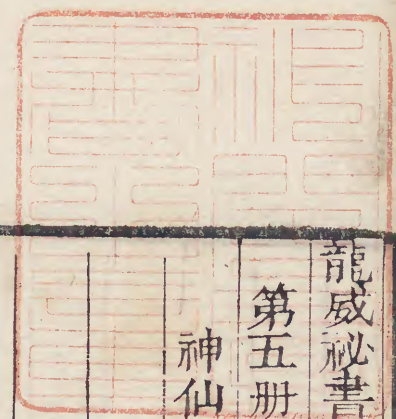 龍威祕書
第五册
神仙